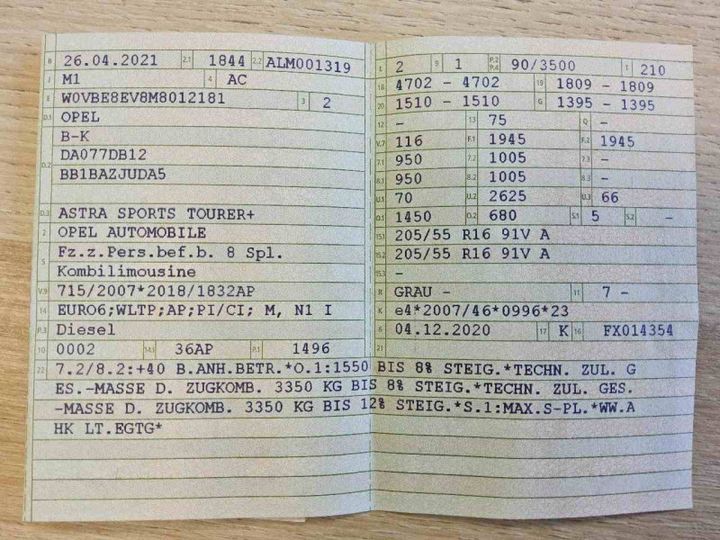 B 26.04.2021 2.1 1844 2.2 ALM001319
J M1 4 AC
E W0VBE8EV8M8012181 3 2
D.1 OPEL
D.2 B-K
DA077DB12
BB1BAZJUDA5
D.3 ASTRA SPORTS TOURER+
2 OPEL AUTOMOBILE
5 Fz.z.Pers.bef.b. 8 Spl.
Kombilimousine
V.9 715/2007*2018/1832AP
14 EURO6;WLTP;AP;PI/CI; M, N1 I
P.3 Diesel
10 0002 14.1 36AP P.1 1496
L 2 9 1 P.2 P.4 90/3500 T 210
18 4702 - 4702 19 1809 - 1809
20 1510 - 1510 G 1395 - 1395
12 - 13 75 Q -
V.7 116 F.1 1945 F.2 1945
7.1 950 7.2 1005 7.3 -
8.1 950 8.2 1005 8.3 -
U.1 70 U.2 2625 U.3 66
O.1 1450 O.2 680 S.1 5 S.2 -
15.1 205/55 R16 91V A
15.2 205/55 R16 91V A
15.3 -
R GRAU - 11 7 -
K e4*2007/46*0996*23
6 04.12.2020 17 K 16 FX014354
21
22 7.2/8.2:+40 B.ANH.BETR.*O.1:1550 BIS 8% STEIG.*TECHN. ZUL. G
ES.-MASSE D. ZUGKOMB. 3350 KG BIS 8% STEIG.*TECHN. ZUL. GES.
-MASSE D. ZUGKOMB. 3350 KG BIS 12% STEIG.*S.1:MAX.S-PL.*WW.A
HK LT.EGTG*